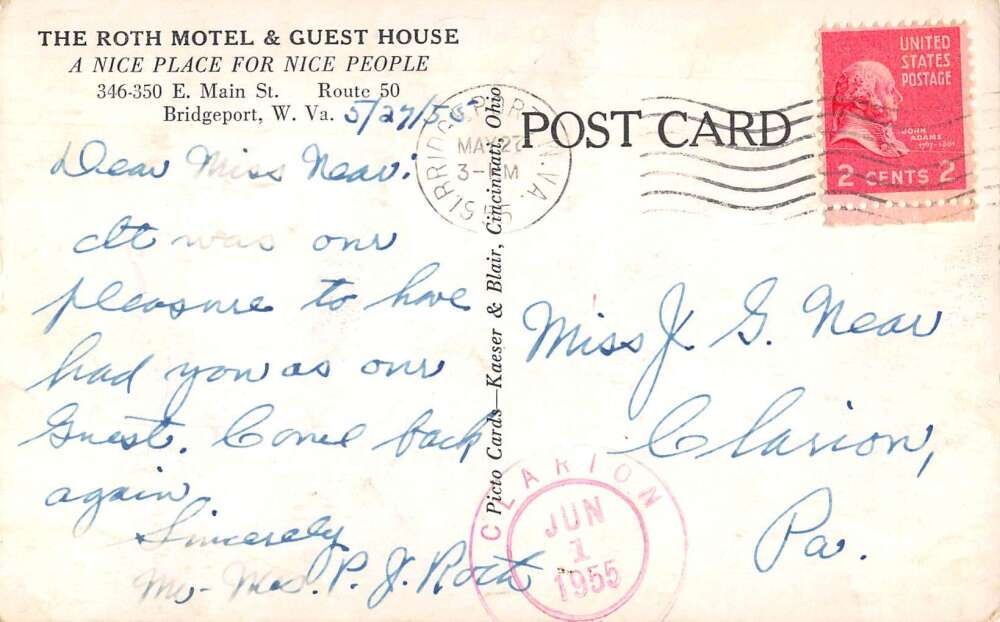 THE ROTH MOTEL & GUEST HOUSE
A NICE PLACE FOR NICE PEOPLE
346-350 E. Main St. Route 50
Bridgeport, W. Va. 5/27/55
Dear Miss Near:
It was our
pleasure to have
had you as our
Guest. Come back
again
Sincerely
Mr-Mrs. P. J. Roth
Picto Cards—Kaeser & Blair, Cincinnati, Ohio
POST CARD
MAY 27
3- PM
W. VA.
UNITED
STATES
POSTAGE
JOHN
ADAMS
1797-1801
2 CENTS 2
Miss J. G. Near
Clarion,
Pa.
CLARION
JUN
1
1955